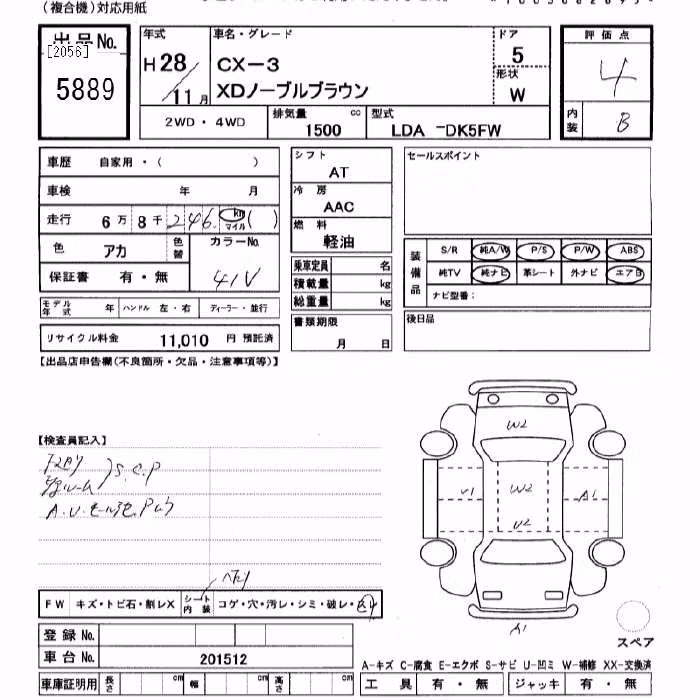 (複合機)対応用紙
出品No.
[2056]
5889
年式
H28/11月
車名・グレード
CX-3
XDノーブルブラウン
ドア
5
形状
W
2WD・4WD
排気量 cc
1500
型式
LDA -DK5FW
評価点
4
内装
B
車歴 自家用・( )
車検 年 月
走行 6万8千246. km マイル ( )
色 アカ 色替
カラーNo.
41V
保証書 有・無
モデル年式 年 ハンドル 左・右 ディーラー・並行
リサイクル料金 11,010 円 預託済
シフト
AT
冷房
AAC
燃料
軽油
乗車定員 名
積載量 kg
総重量 kg
書類期限
月 日
セールスポイント
装備品
S/R 純A/W P/S P/W ABS
純TV 純ナビ 革シート 外ナビ エアB
ナビ型番:
後日品
【出品店申告欄(不良箇所・欠品・注意事項等)】
【検査員記入】
S.C.P
A.U.
FW キズ・トビ石・割レX
シート内装 コゲ・穴・汚レ・シミ・破レ・
登録No.
車台No. 201512
車庫証明用 長さ cm 幅 cm 高さ cm
W2
V1
W2
A1
U2
A1
スペア
A-キズ C-腐食 E-エクボ S-サビ U-凹ミ W-補修 XX-交換済
工具 有・無 ジャッキ 有・無